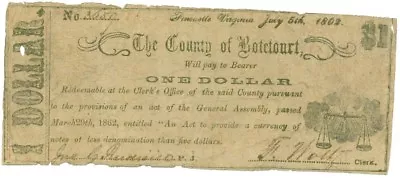 No.
Fincastle Virginia July 5th, 1862.
1 DOLLAR.
$1
The County of Botetourt,
Will pay to Bearer
ONE DOLLAR
Redeemable at the Clerk's Office of the said County pursuant
to the provisions of an act of the General Assembly, passed
March 29th, 1862, entitled "An Act to provide a currency of
notes of less denomination than five dollars.
Clerk.